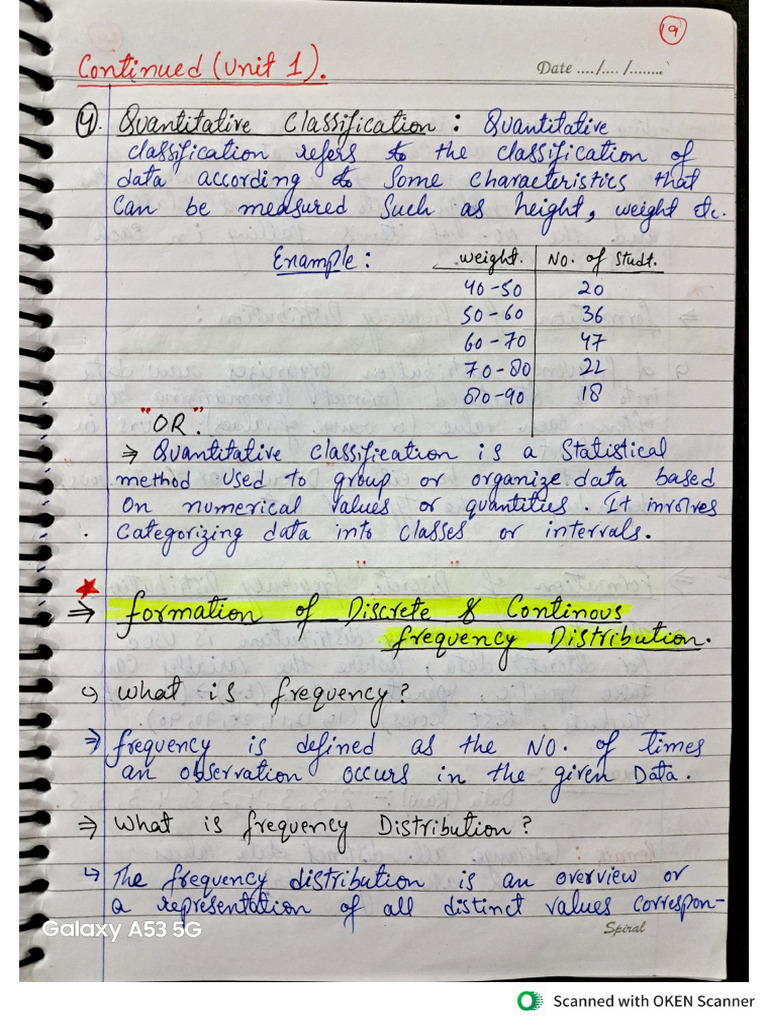 19
Continued (Unit 1).
Date ..../.... /........
4. Quantitative Classification : Quantitative
classification refers to the classification of
data according to Some characteristics that
Can be measured Such as height, weight etc.
Example : weight. No. of Studt.
40-50 20
50-60 36
60-70 47
70-80 22
80-90 18
"OR"
⇒ Quantitative classification is a Statistical
method used to group or organize data based
On numerical values or quantities. It involves
Categorizing data into classes or intervals.
⇒ formation of Discrete & Continous
frequency Distribution.
↪ What is frequency?
⇒ frequency is defined as the NO. of times
an observation occurs in the given Data.
⇒ What is frequency Distribution?
↪ The frequency distribution is an overview or
a representation of all distinct values correspon-
Galaxy A53 5G
Spiral
Scanned with OKEN Scanner